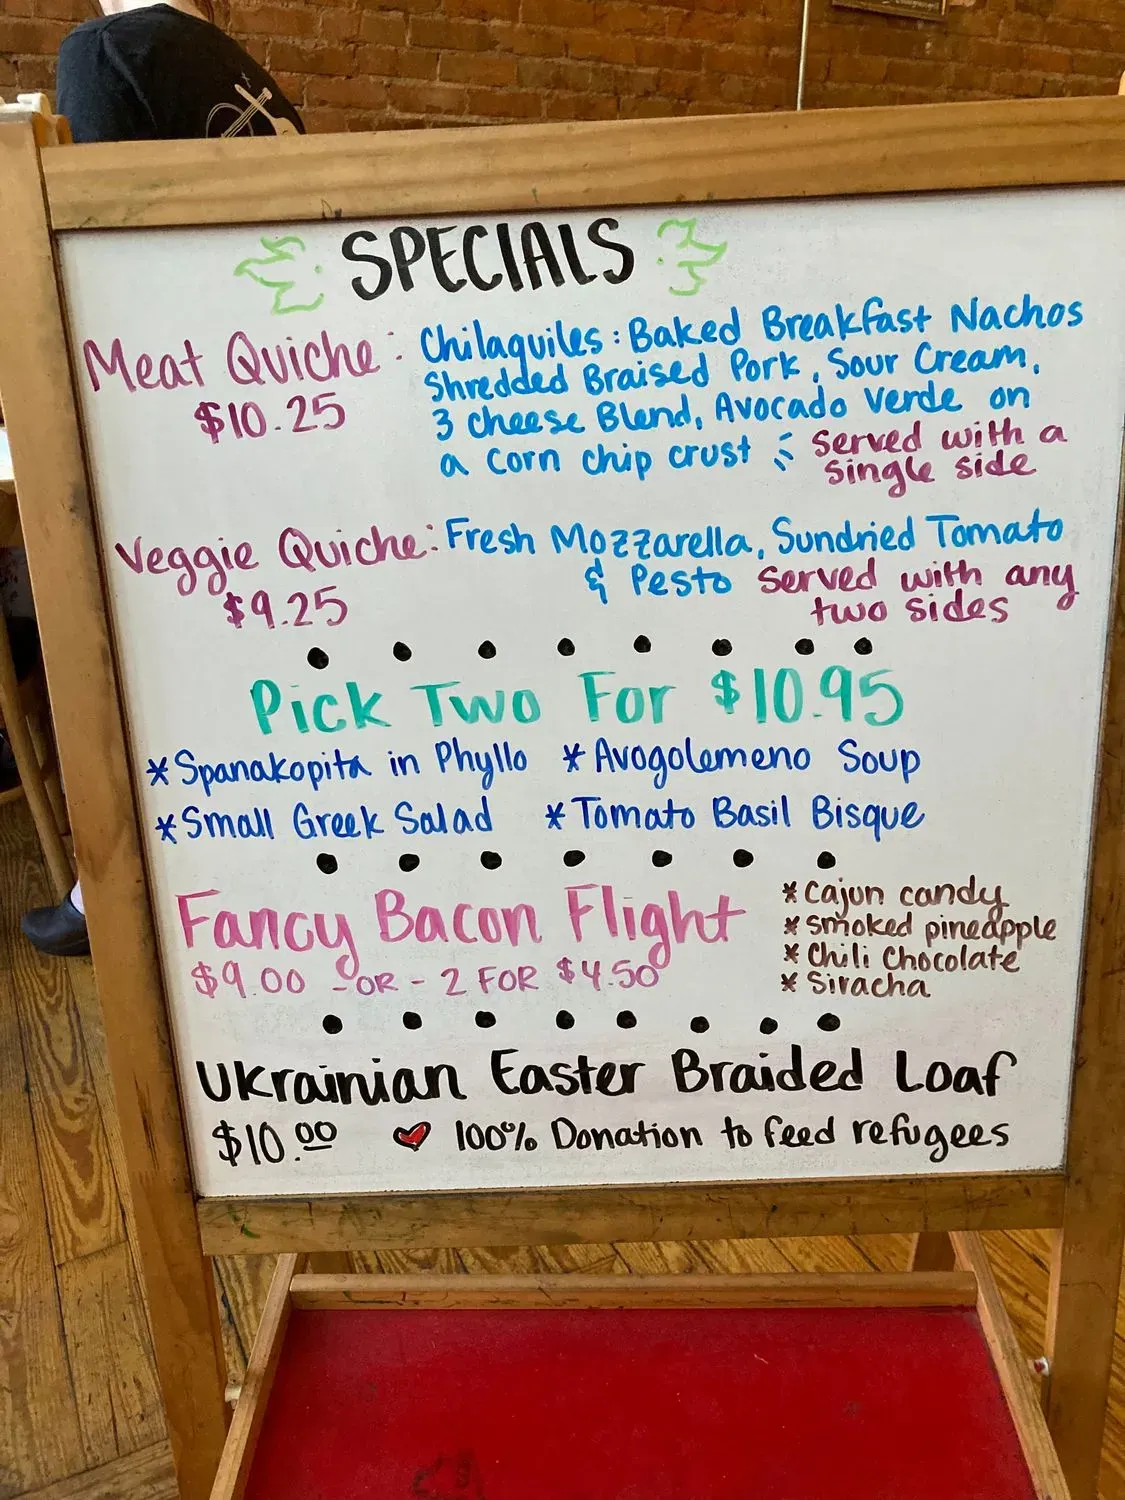 SPECIALS
Meat Quiche:
$10.25
Chilaquiles: Baked Breakfast Nachos
Shredded Braised Pork, Sour Cream,
3 cheese Blend, Avocado Verde on
a corn chip crust served with a
single side
Veggie Quiche: Fresh Mozzarella, Sundried Tomato
$9.25
& Pesto served with any
two sides
Pick Two For $10.95
*Spanakopita in Phyllo *Avogolemeno Soup
*Small Greek Salad *Tomato Basil Bisque
Fancy Bacon Flight
$9.00 -OR- 2 FOR $4.50
*Cajun candy
*smoked pineapple
*Chili Chocolate
*Siracha
Ukrainian Easter Braided Loaf
$10.00 100% Donation to feed refugees